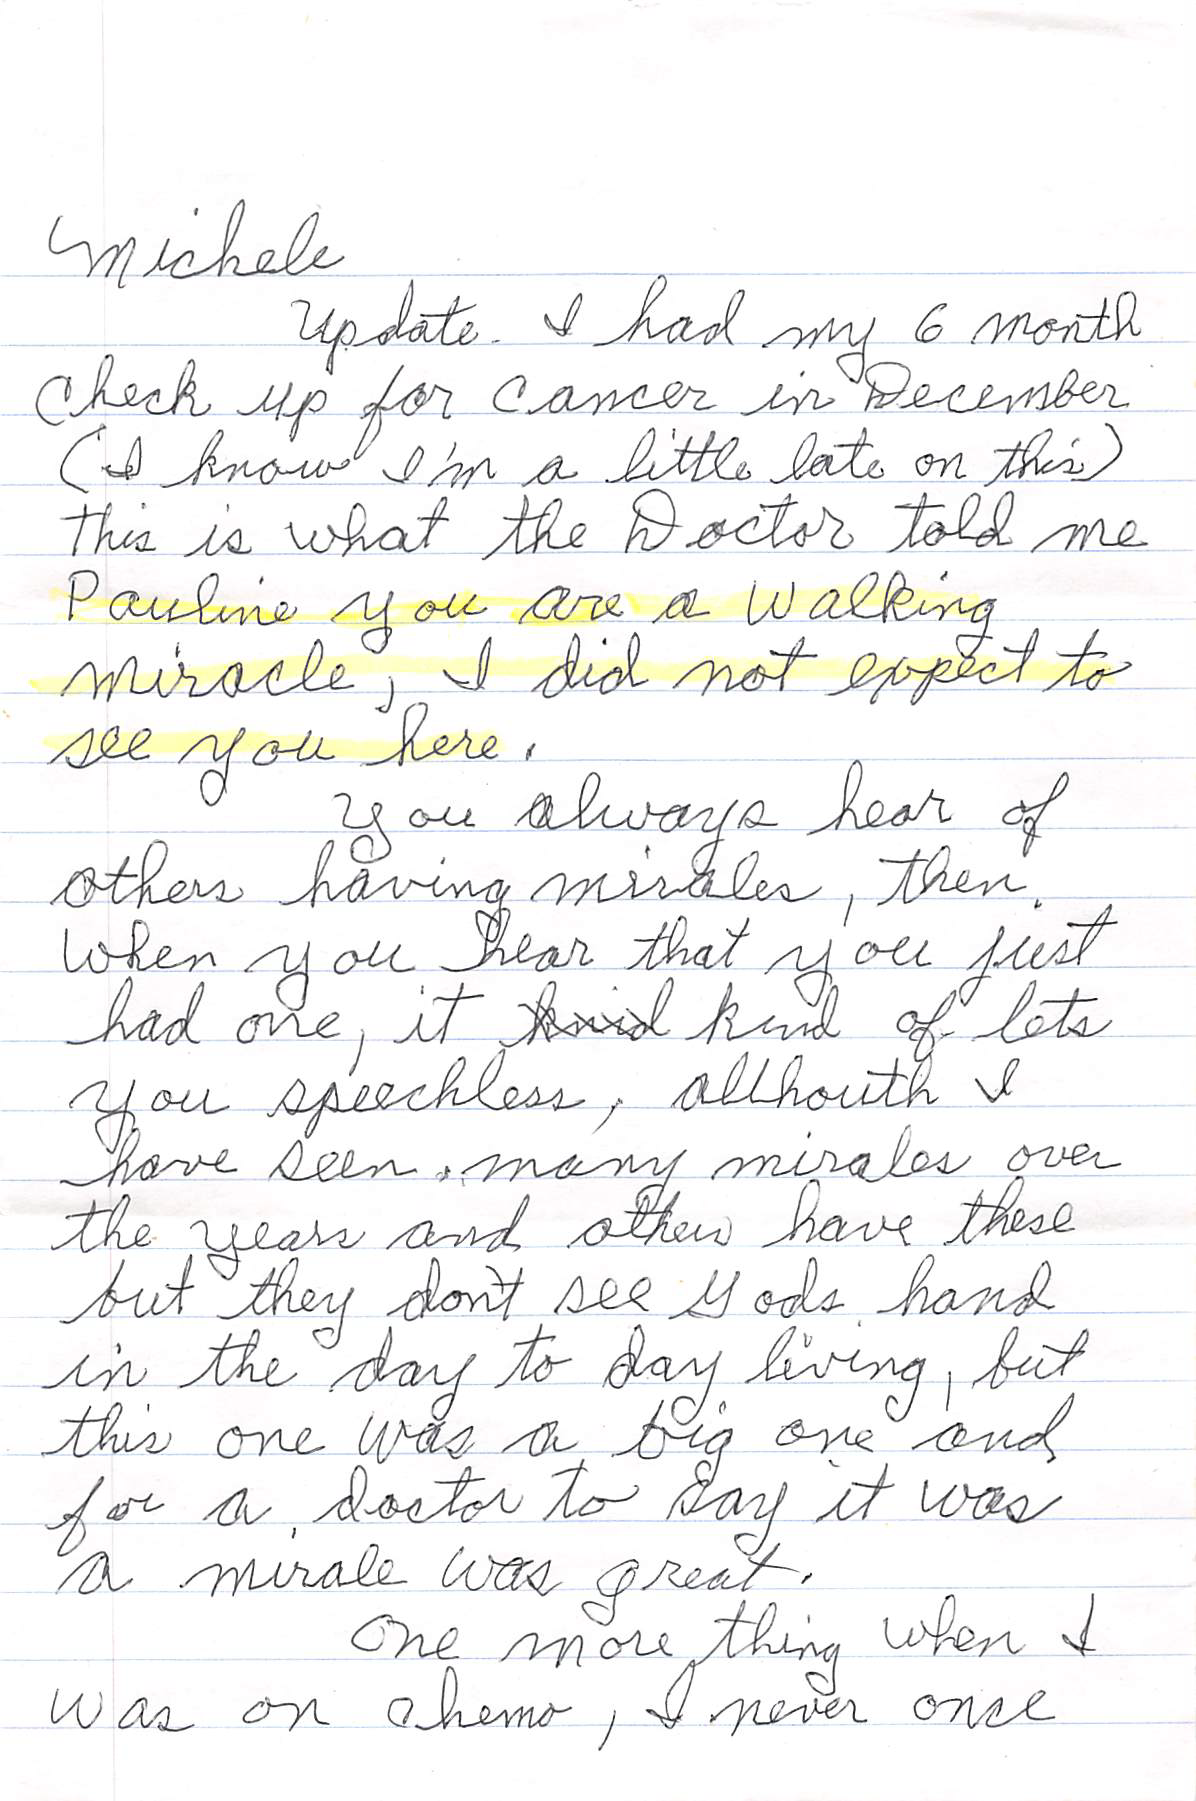 Michele
Update. I had my 6 month
check up for cancer in December
(I know I'm a little late on this)
This is what the Doctor told me
Pauline you are a walking
miracle, I did not expect to
see you here.
You always hear of
others having mirales, then
when you hear that you just
had one, it knid kind of lets
you speechless, allhouth I
have seen many mirales over
the years and others have these
but they don't see Gods hand
in the day to day living, but
this one was a big one and
for a doctor to say it was
a mirale was great.
One more thing when I
was on chemo, I never once